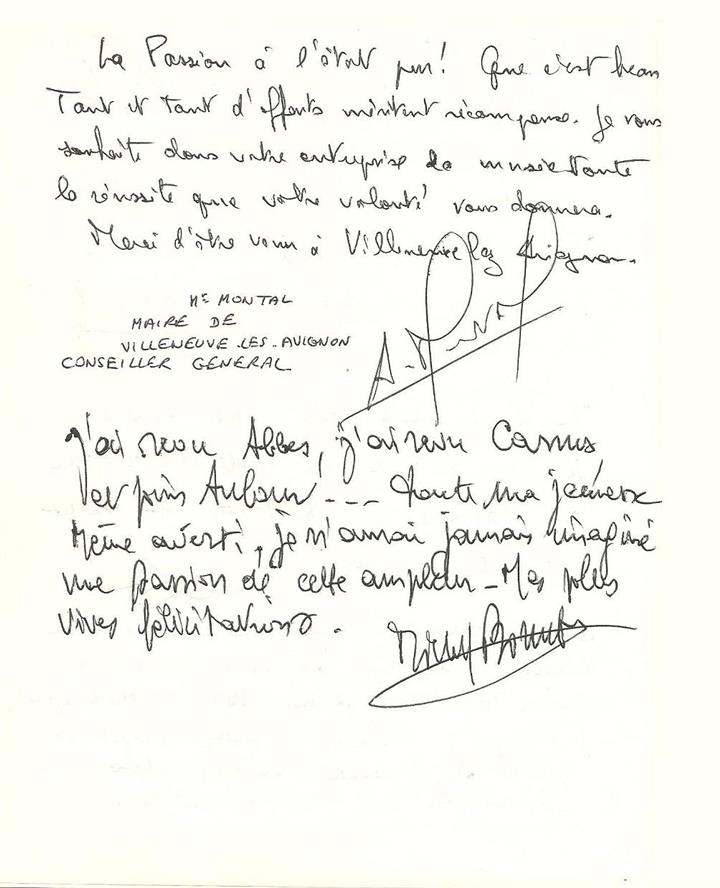 La Passion à l'état pur! Que c'est beau
Tant et tant d'efforts méritent récompense. Je vous
souhaite dans votre entreprise de
la réussite que votre volonté vous donnera.
Merci d'être venu à Villeneuve lez Avignon.
Me MONTAL
MAIRE DE
VILLENEUVE-LES-AVIGNON
CONSEILLER GENERAL
J'ai revu Abbes, j'ai revu Camus,
et puis --- toute ma jeunesse
même averti, je n'aurai jamais imaginé
une passion de cette ampleur - Mes plus
vives félicitations.